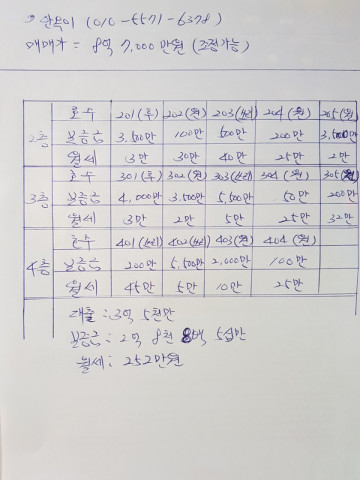 (010-5571-6378)
매매가 = 8억 7,000만원 (조정가능)
2층 호수 201(투) 202(원) 203(쓰리) 204(원) 205(원)
보증금 3,500만 100만 500만 200만 3,500만
월세 13만 30만 40만 25만 2만
3층 호수 301(투) 302(원) 303(쓰리) 304(원) 305(원)
보증금 4,000만 3,500만 5,500만 50만 200만
월세 3만 2만 5만 25만 32만
4층 호수 401(쓰리) 402(쓰리) 403(원) 404(원)
보증금 200만 5,500만 2,000만 100만
월세 45만 5만 10만 25만
대출 : 3억 5천만
보증금 : 2억 8천 8백 5십만
월세 : 252만원